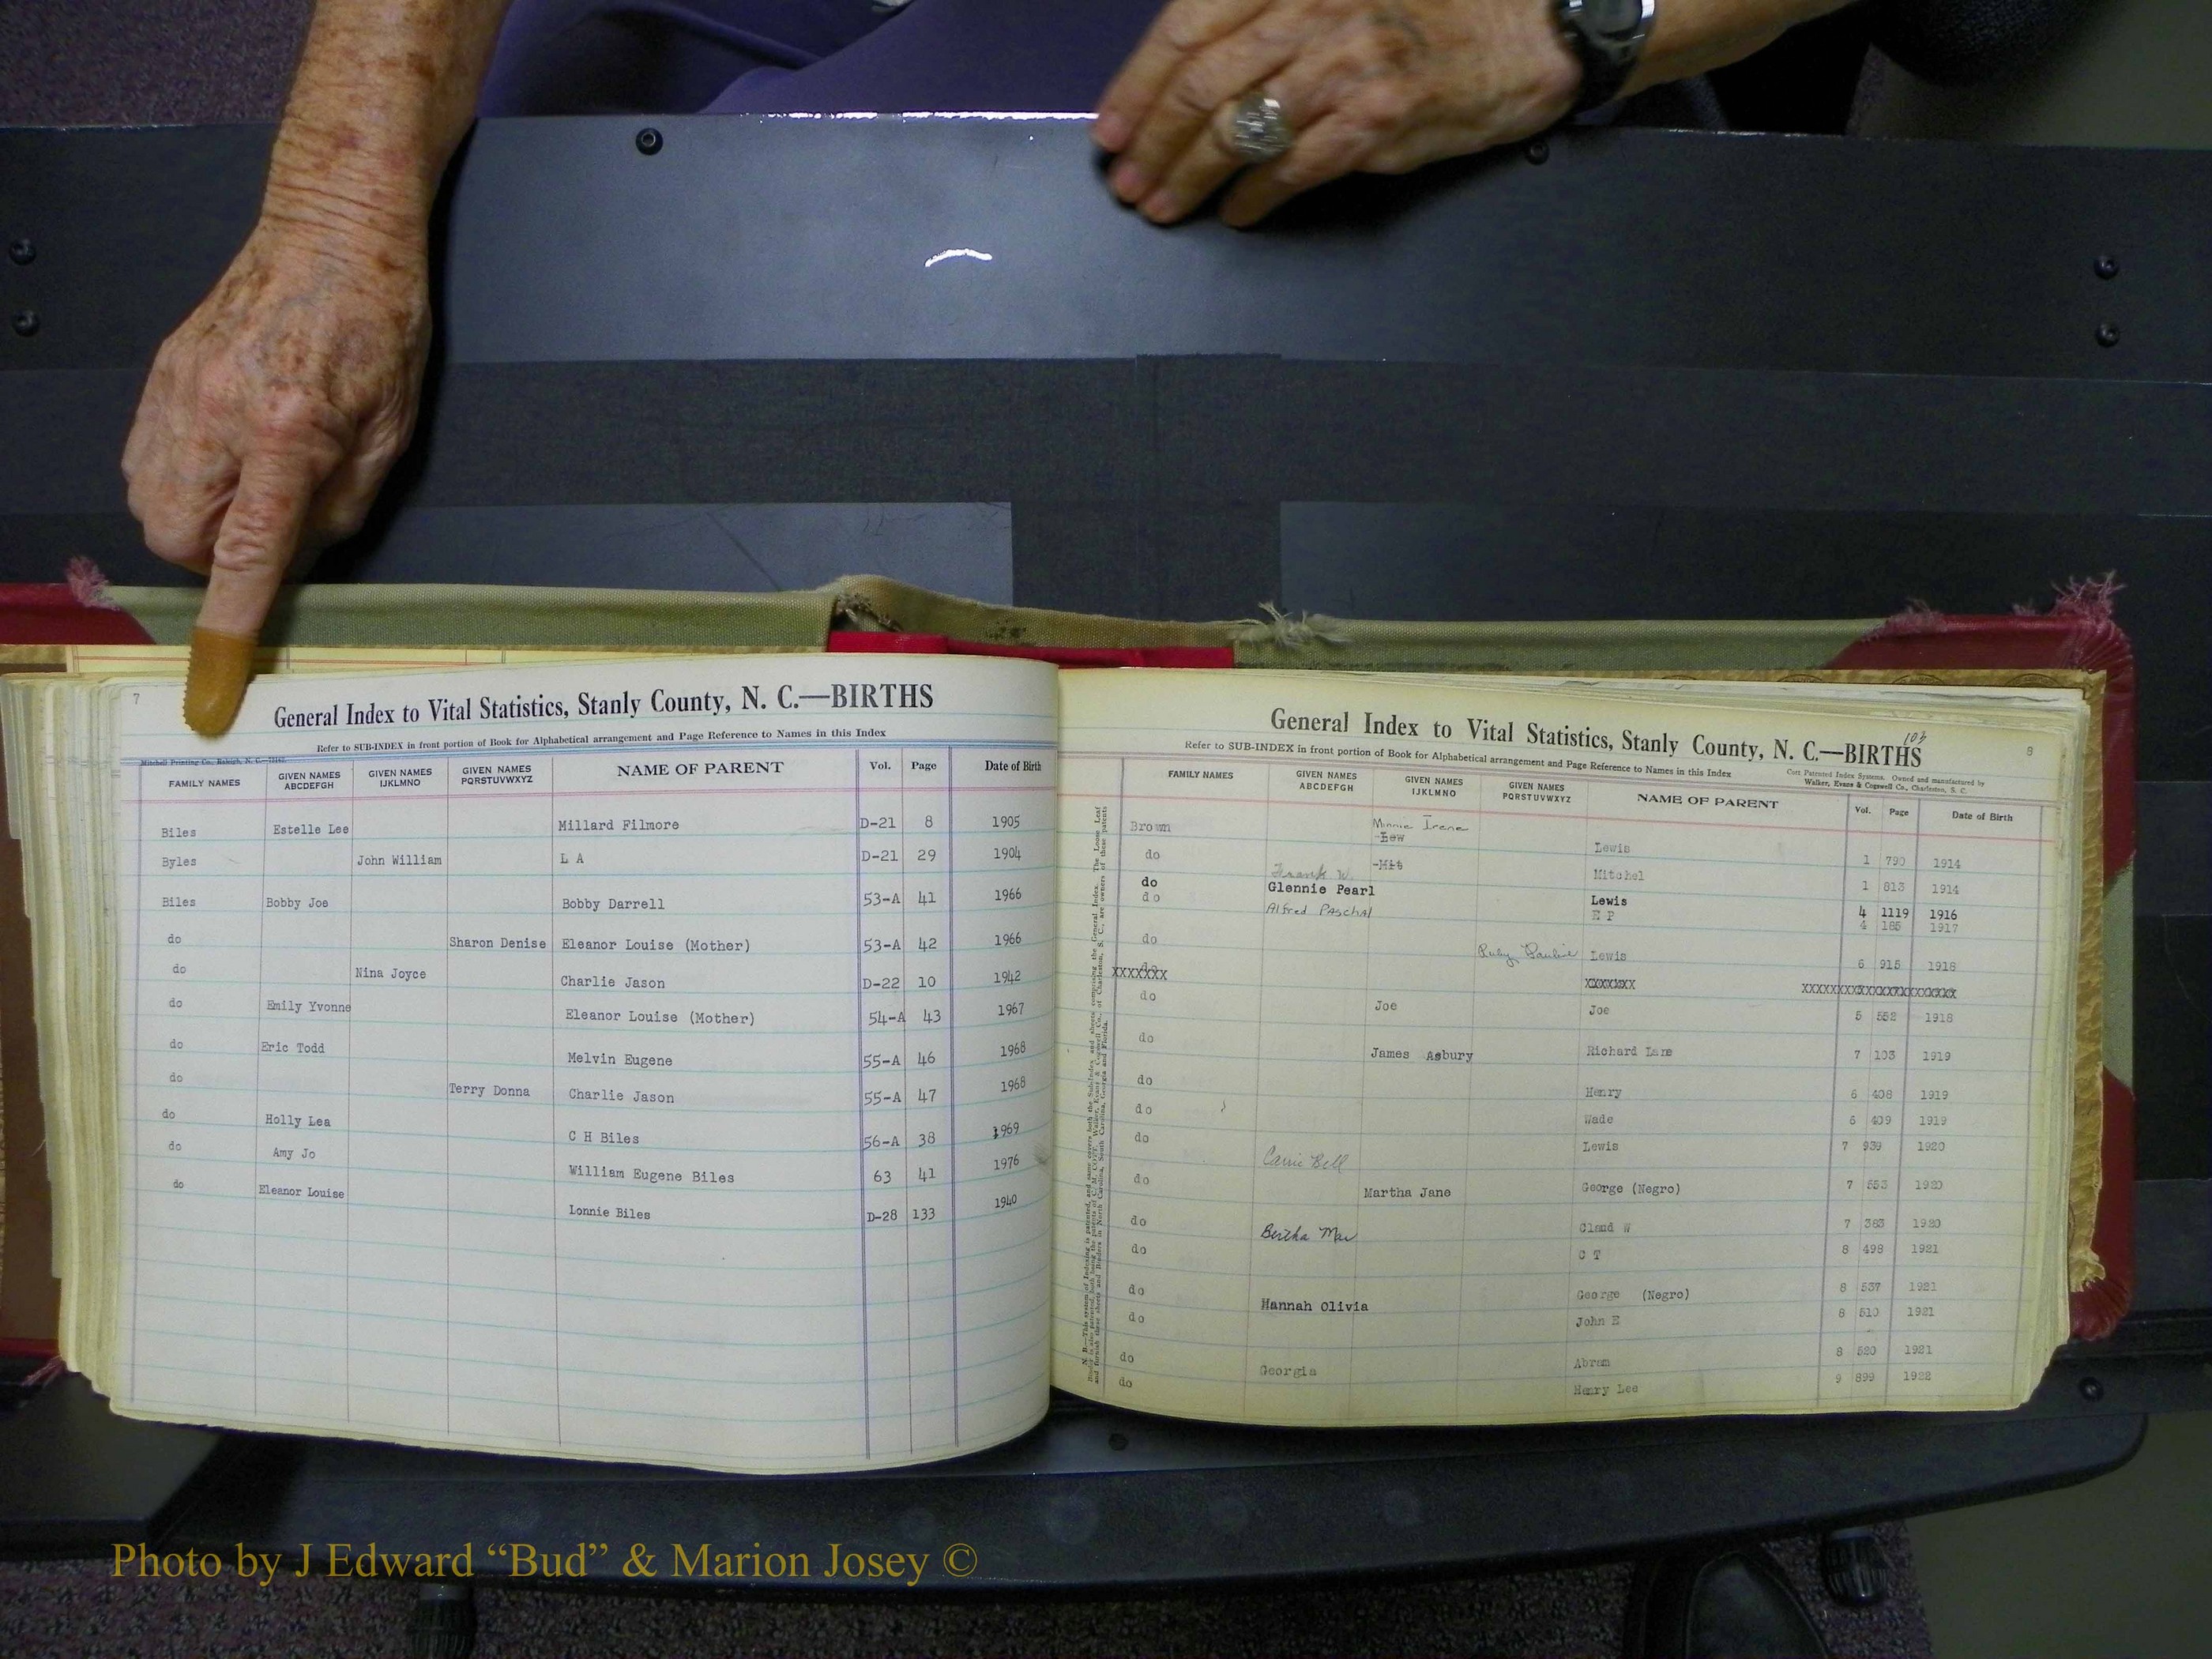 7
General Index to Vital Statistics, Stanly County, N. C.—BIRTHS
Refer to SUB-INDEX in front portion of Book for Alphabetical arrangement and Page Reference to Names in this Index
Mitchell Printing Co., Raleigh, N. C.
FAMILY NAMES GIVEN NAMES ABCDEFGH GIVEN NAMES IJKLMNO GIVEN NAMES PQRSTUVWXYZ NAME OF PARENT Vol. Page Date of Birth
Biles Estelle Lee Millard Filmore D-21 8 1905
Byles John William L A D-21 29 1904
Biles Bobby Joe Bobby Darrell 53-A 41 1966
do Sharon Denise Eleanor Louise (Mother) 53-A 42 1966
do Nina Joyce Charlie Jason D-22 10 1942
do Emily Yvonne Eleanor Louise (Mother) 54-A 43 1967
do Eric Todd Melvin Eugene 55-A 46 1968
do Terry Donna Charlie Jason 55-A 47 1968
do Holly Lea C H Biles 56-A 38 1969
do Amy Jo William Eugene Biles 63 41 1976
do Eleanor Louise Lonnie Biles D-28 133 1940
103
8
General Index to Vital Statistics, Stanly County, N. C.—BIRTHS
Refer to SUB-INDEX in front portion of Book for Alphabetical arrangement and Page Reference to Names in this Index
Cott Patented Index Systems. Owned and manufactured by
Walker, Evans & Cogswell Co., Charleston, S. C.
FAMILY NAMES GIVEN NAMES ABCDEFGH GIVEN NAMES IJKLMNO GIVEN NAMES PQRSTUVWXYZ NAME OF PARENT Vol. Page Date of Birth
Brown Minnie Irene Lewis 1 790 1914
do Frank W. Mitchel 1 813 1914
do Glennie Pearl Lewis 4 1119 1916
do Alfred Paschal E P 4 185 1917
do Ruby Pauline Lewis 6 915 1918
do Joe Joe 5 552 1918
do James Asbury Richard Lane 7 103 1919
do Henry 6 408 1919
do Wade 6 409 1919
do Carrie Bell Lewis 7 939 1920
do Martha Jane George (Negro) 7 553 1920
do Bertha Mae Claud W 7 383 1920
do C T 8 498 1921
do Hannah Olivia George (Negro) 8 537 1921
do John E 8 510 1921
do Georgia Abram 8 520 1921
do Henry Lee 9 899 1922
Photo by J Edward “Bud” & Marion Josey ©